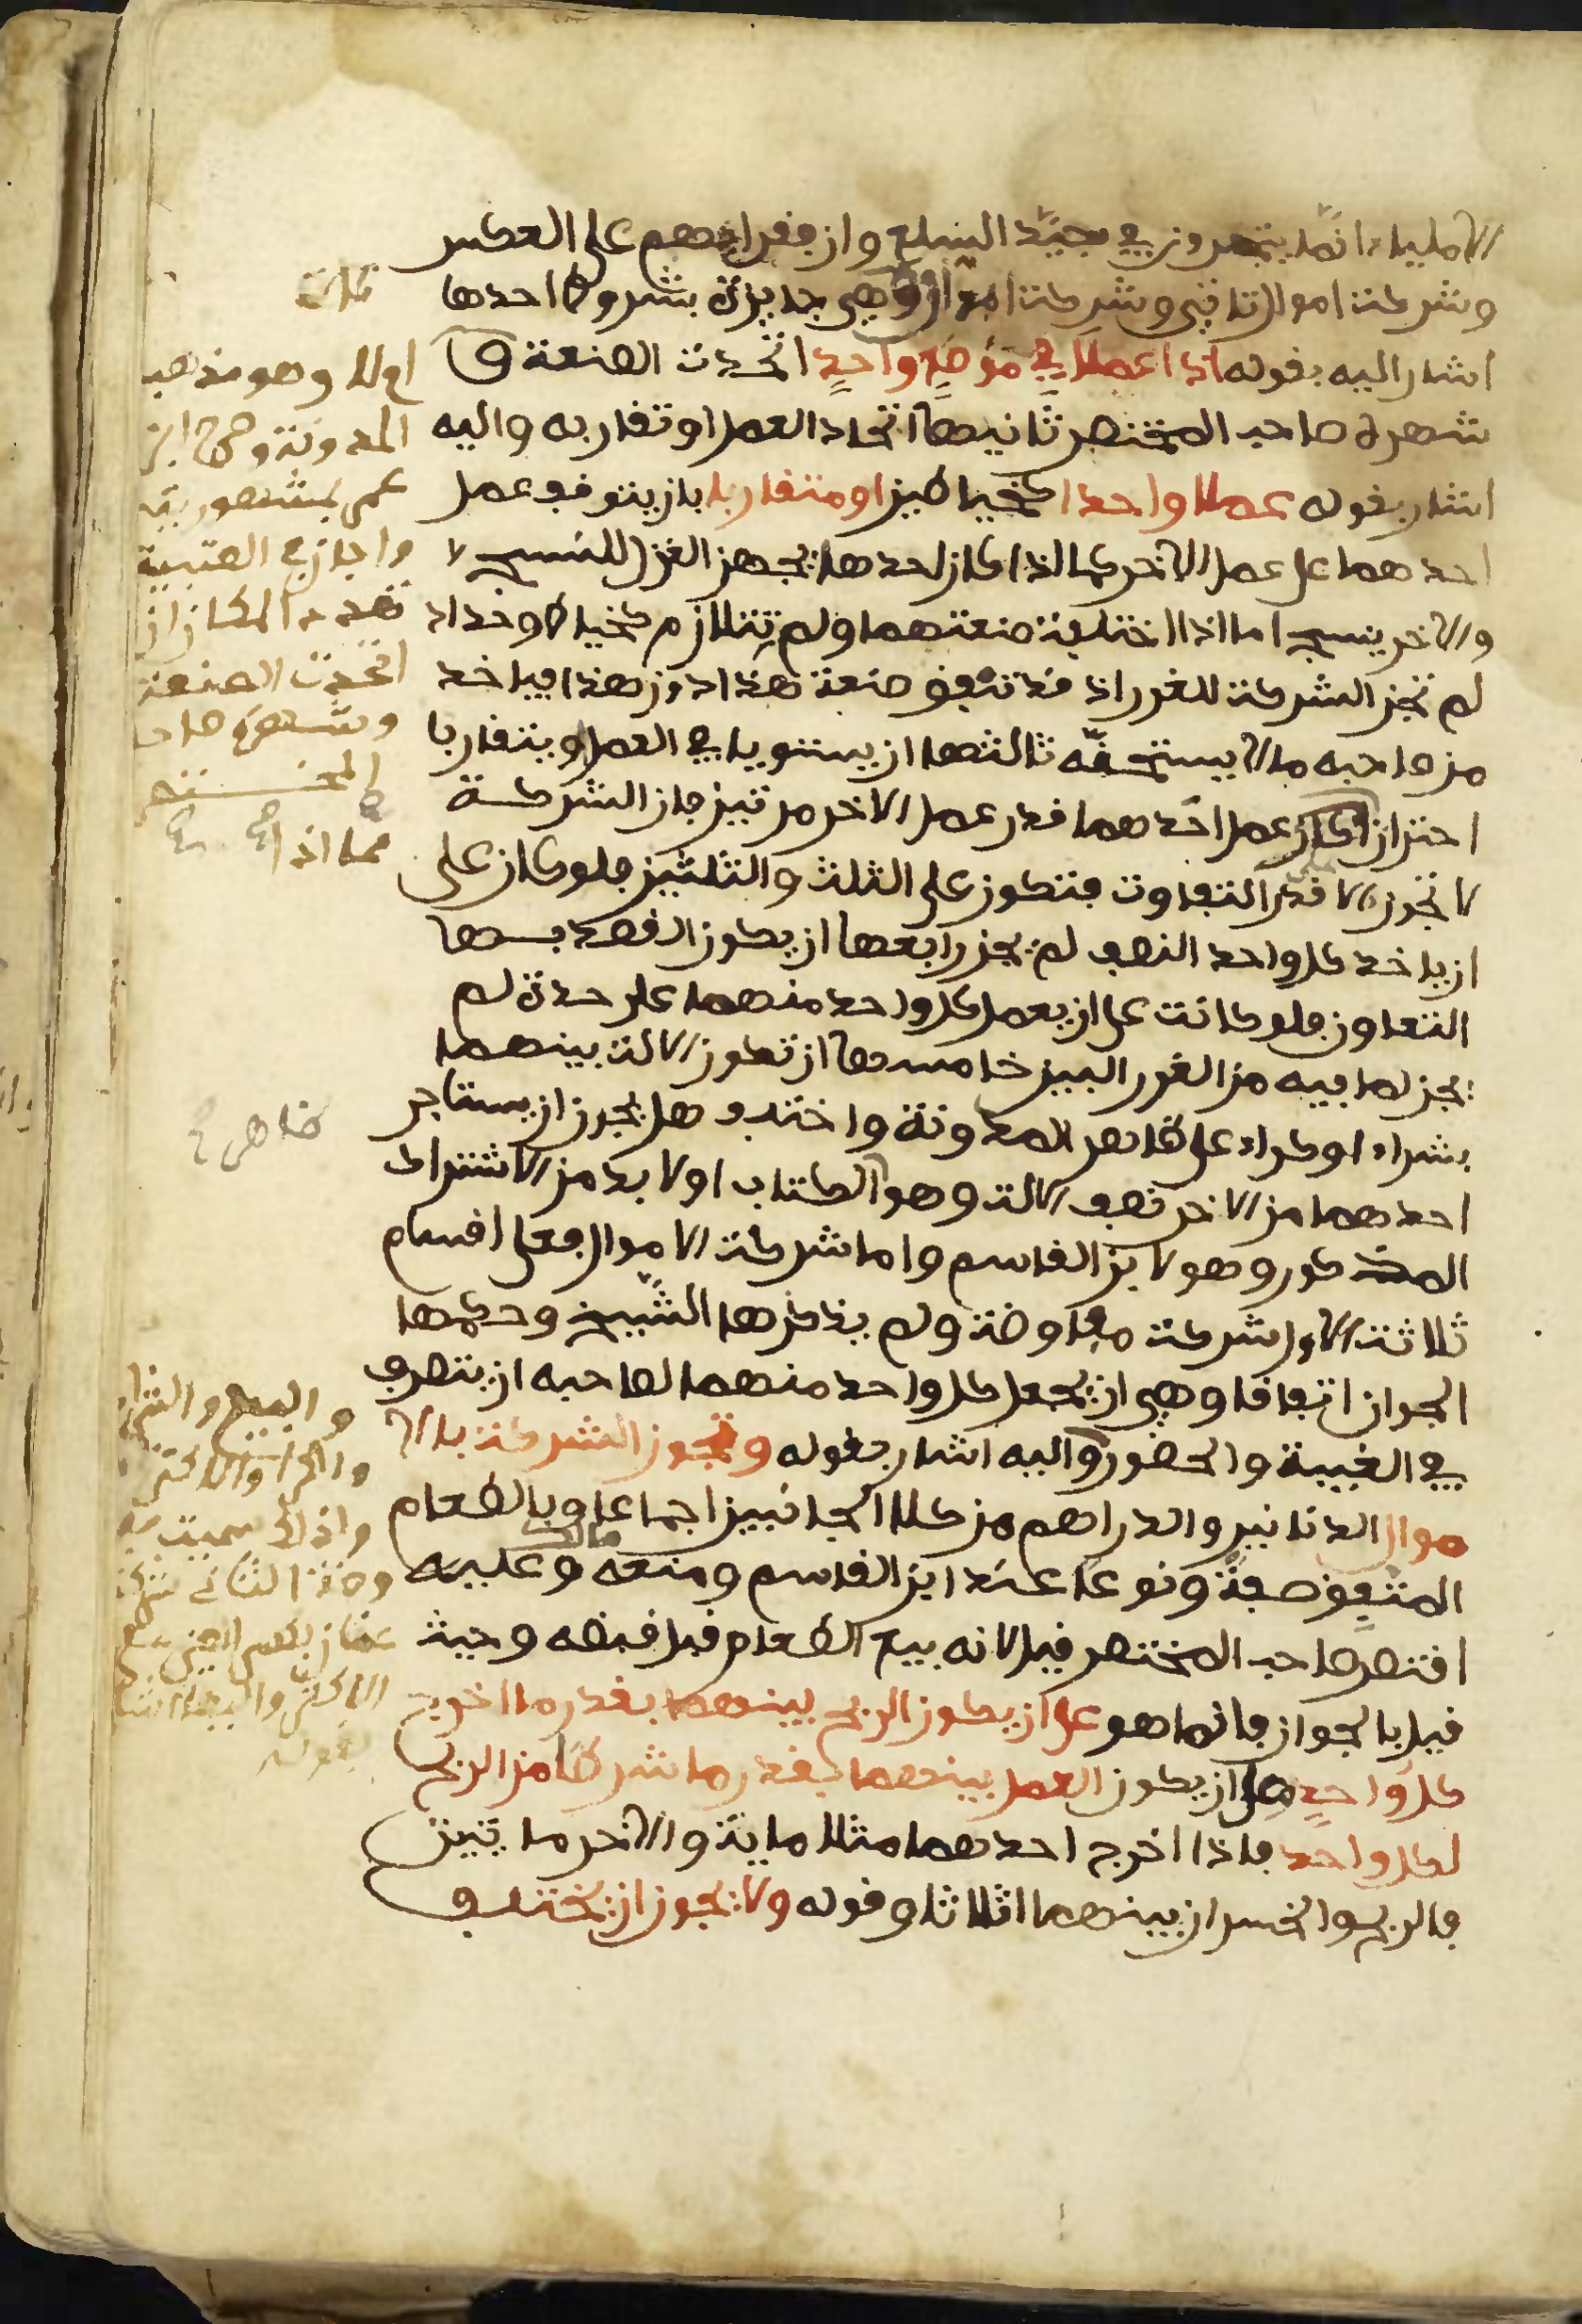 الاملياء انما يتجرون في جيد السلع وان فقراءهم على العكس
وشركة اموال تاتي وشركة وهي جايزة بشروط احدها
اشار اليه بقوله اذا عملا في موضع واحد اتحدت الصنعة و
شهره صاحب المختصر ثانيها اتحاد العمل او تقاربه واليه
اشار بقوله عملا واحدا كخياطين او متقاربا بان يتوقف عمل
احدهما على عمل الاخر كما اذا كان احدهما يجهز الغزل للنسج
والاخر ينسج اما اذا اختلفت صنعتهما ولم تتلازم كخياط وحداد
لم تجز الشركة للغرر اذ قد تنفق صنعة هذا دون هذا فياخذ
من صاحبه مالا يستحقه ثالثها ان يستويا في العمل او يتقاربا
احتراز عمل احدهما قدر عمل الاخر مرتين فان الشركة
لا تجوز الا على قدر التفاوت فتكون على الثلث والثلثين فلو كان على
ان ياخذ كل واحد النصف لم يجز رابعها ان يكون القصد بها
التعاون فلو كانت على ان يعمل كل واحد منهما على حدة لم
يجز لما فيه من الغرر البين خامسها ان تكون الالة بينهما
بشراء او كراء على ظاهر المدونة واختلف هل يجوز ان يستاجر
احدهما من الاخر نصف الالة وهو الكتاب او لا بد من الاشتراك
المذكور وهو لابن القاسم واما شركة الاموال فعلى اقسام
ثلاثة الاول شركة مفاوضة ولم يذكرها الشيخ وحكمها
الجواز اتفاقا وهي ان يجعل كل واحد منهما لصاحبه ان يتصرف
في الغيبة والحضور واليه اشار بقوله وتجوز الشركة بالا
موال الدنانير والدراهم من كلا الجانبين اجماعا وبالطعام
المتفق صفة ونوعا عند ابن القاسم ومنعه مالك وعليه
اقتصر صاحب المختصر قيل لانه بيع الطعام قبل قبضه وحيث
قيل بالجواز فانما هو على ان يكون الربح بينهما بقدر ما اخرج
كل واحد على ان يكون العمل بينهما بقدر ما شرطا من الربح
لكل واحد فاذا اخرج احدهما مثلا ماية والاخر مايتين
فالربح والخسران بينهما اثلاثا وقوله ولا يجوز ان يختلف
اولا وهو مذهب
المدونة
واجاز في العتبية
تعدد المكان ان
اتحدت الصنعة
وشهره صاحب
المختصر
مما اذا
ظاهر
والبيع والشراء
والكراء والاكترا